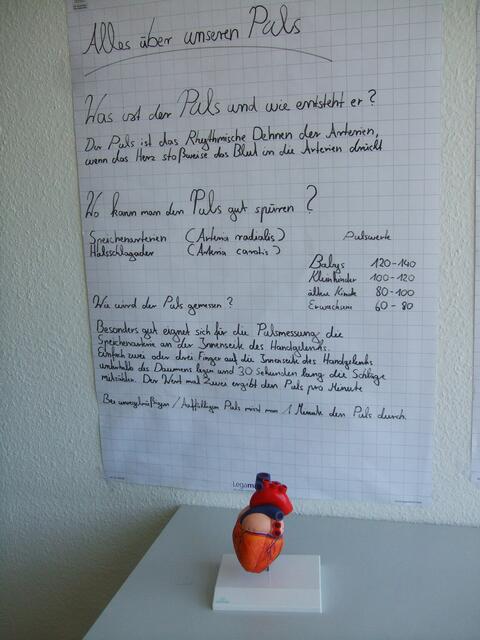 Alles über unseren Puls
Was ist der Puls und wie entsteht er?
Der Puls ist das Rhythmische Dehnen der Arterien,
wenn das Herz stoßweise das Blut in die Arterien drückt
Wo kann man den Puls gut spüren?
Speichenarterien (Arteria radialis)
Halsschlagader (Arteria carotis)
Pulswerte
Babys 120-140
Kleinkinder 100-120
ältere Kinder 80-100
Erwachsene 60-80
Wie wird der Puls gemessen?
Besonders gut eignet sich für die Pulsmessung die
Speichenarterie an der Innenseite des Handgelenks.
Einfach zwei oder drei Finger auf die Innenseite des Handgelenks
unterhalb des Daumens legen und 30 Sekunden lang die Schläge
mitzählen. Der Wert mal zwei ergibt den Puls pro Minute
Bei unregelmäßigen / Auffälligen Puls misst man 1 Minute den Puls durch
Legamaster